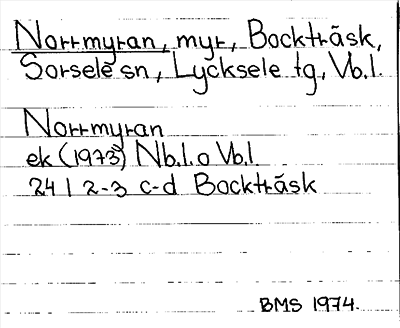 Norrmyran, myr, Bockträsk,
Sorsele sn, Lycksele tg, Vb.l.
Norrmyran
ek (1973) Nb.l. o Vb.l.
24 I 2-3 c-d Bockträsk
BMS 1974.